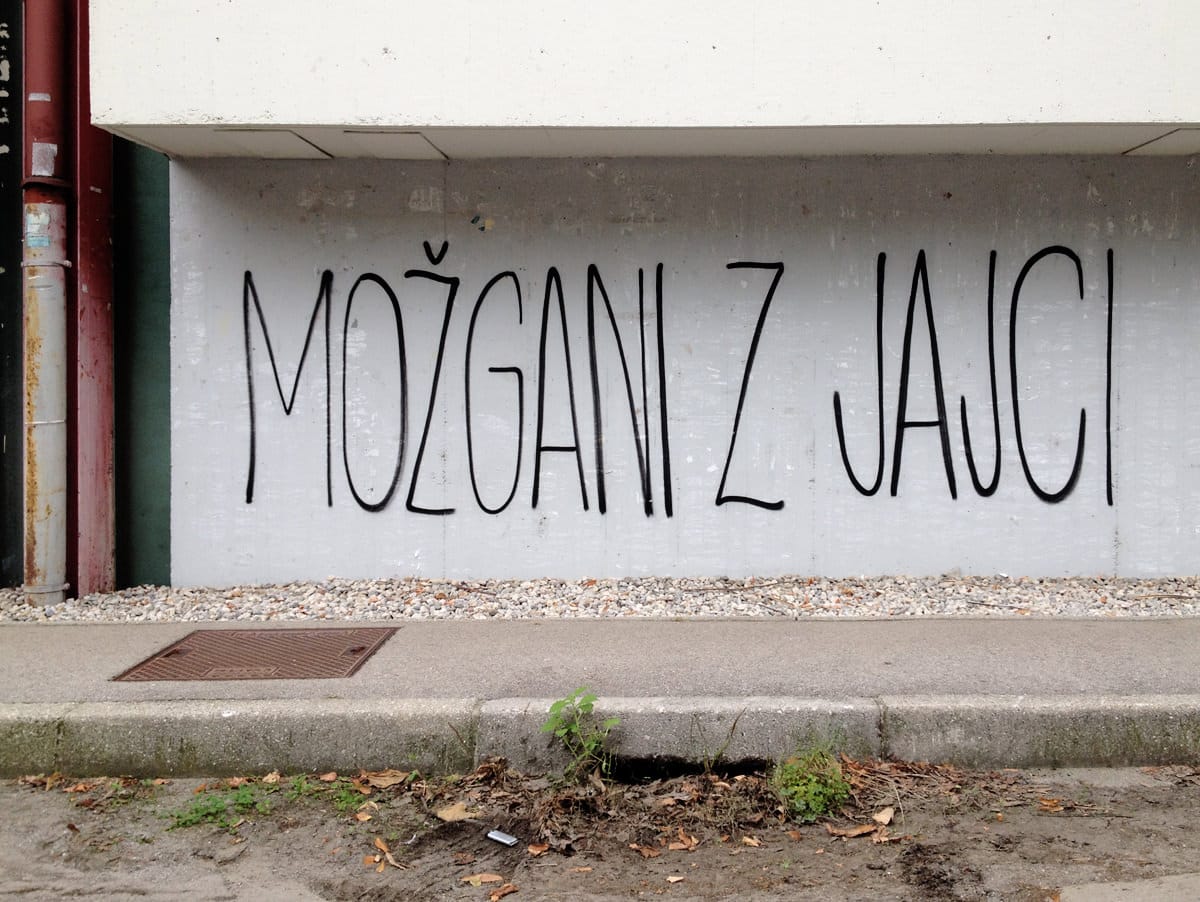 MOŽGANI Z JAJCI